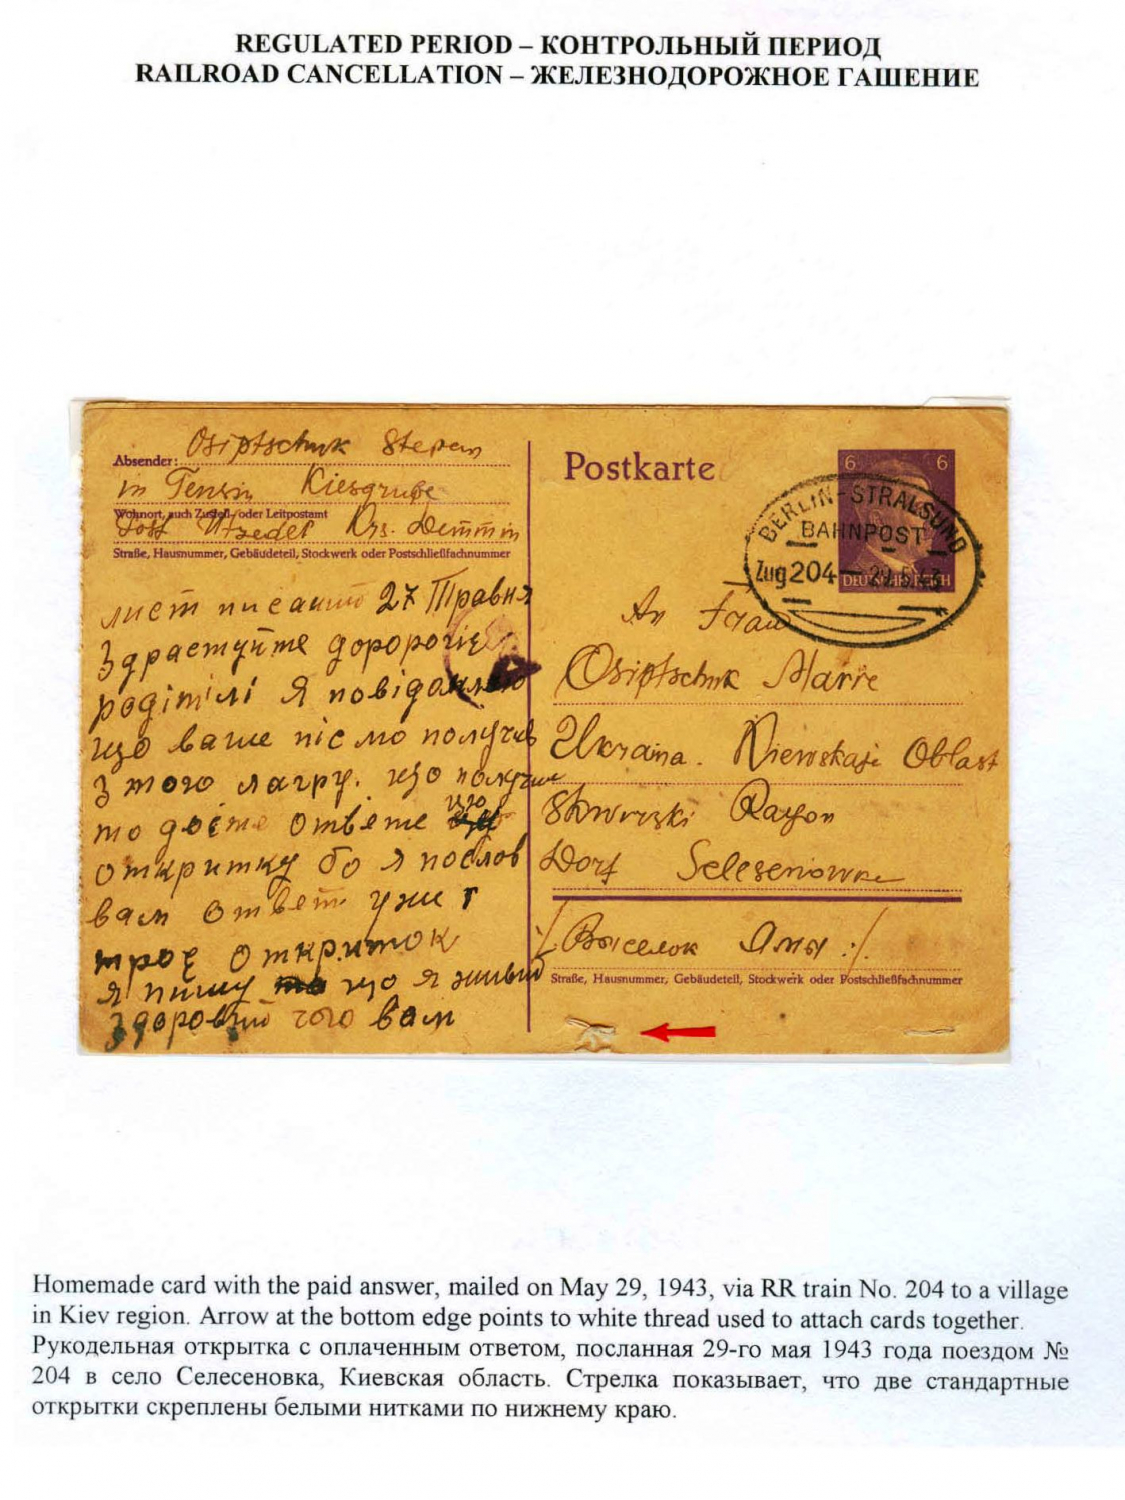 REGULATED PERIOD – КОНТРОЛЬНЫЙ ПЕРИОД
RAILROAD CANCELLATION – ЖЕЛЕЗНОДОРОЖНОЕ ГАШЕНИЕ
Osiptschuk Stepan
Absender:
in Tenzin Kiesgrube
Wohnort, auch Zustell- oder Leitpostamt
Post Utzedel Krs. Demmin
Straße, Hausnummer, Gebäudeteil, Stockwerk oder Postschließfachnummer
лист писаний 27 Травня
Здрастуйте доророгіє
родітілі Я повідомляю
що ваше пісмо получив
з того лагру. що получите
то досте ответе
що
открытку бо я послов
вам ответ уже г
троє откриток
я пишу що я живий
здоровий чого вам
Postkarte
6 6
DEUTSCHES REICH
BERLIN-STRALSUND
BAHNPOST
Zug 204 – 29.5.43
An Frau
Osiptschuk Marie
Ukraina. Kiewskaje Oblast
Skwirzki Rayon
Dorf Selesenowke
/Выселок Ямы:/.
Straße, Hausnummer, Gebäudeteil, Stockwerk oder Postschließfachnummer
Homemade card with the paid answer, mailed on May 29, 1943, via RR train No. 204 to a village
in Kiev region. Arrow at the bottom edge points to white thread used to attach cards together.
Рукодельная открытка с оплаченным ответом, посланная 29-го мая 1943 года поездом №
204 в село Селесеновка, Киевская область. Стрелка показывает, что две стандартные
открытки скреплены белыми нитками по нижнему краю.